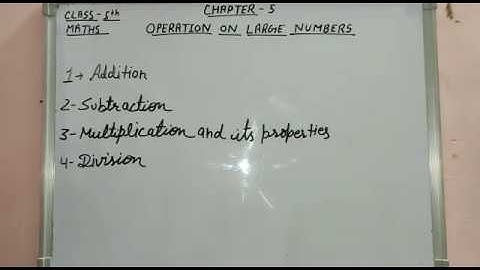 CLASS-5th
CHAPTER-5
MATHS
OPERATION ON LARGE NUMBERS
1→ Addition
2- Subtraction
3- Multiplication and its properties
4- Division